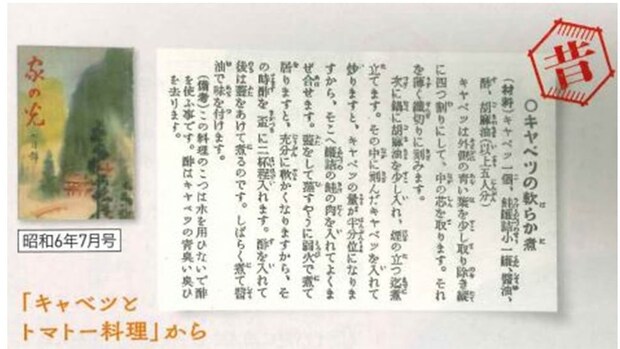 昔
家の光
七月号
昭和6年7月号
「キャベツと
トマトー料理」から
○キヤベツの軟らか煮
(材料)キヤベツ一個、鮭罐詰小一罐、醤油、
酢、胡麻油(以上五人分)
キヤベツは外側の青い葉を少し取り除き縦
に四つ割りにして、中の芯を取ります。それ
を薄く纎切りに刻みます。
次に鍋に胡麻油を少し入れ、煙の立つ迄煮
立てます。その中に刻んだキヤベツを入れて
炒りますと、キヤベツの量が半分位になりま
すから、そこへ罐詰の鮭の肉を入れてよくま
ぜ合せます。蓋をして蒸すやうに弱火で煮て
居りますと、充分に軟かくなりますから、そ
の時酢を盃に二杯程入れます。酢を入れて
後は蓋をあけて煮るのです。しばらく煮て醤
油で味を付けます。
(備考)この料理のこつは水を用ひないで酢
を使ふ事です。酢はキヤベツの青臭い臭ひ
を去ります。